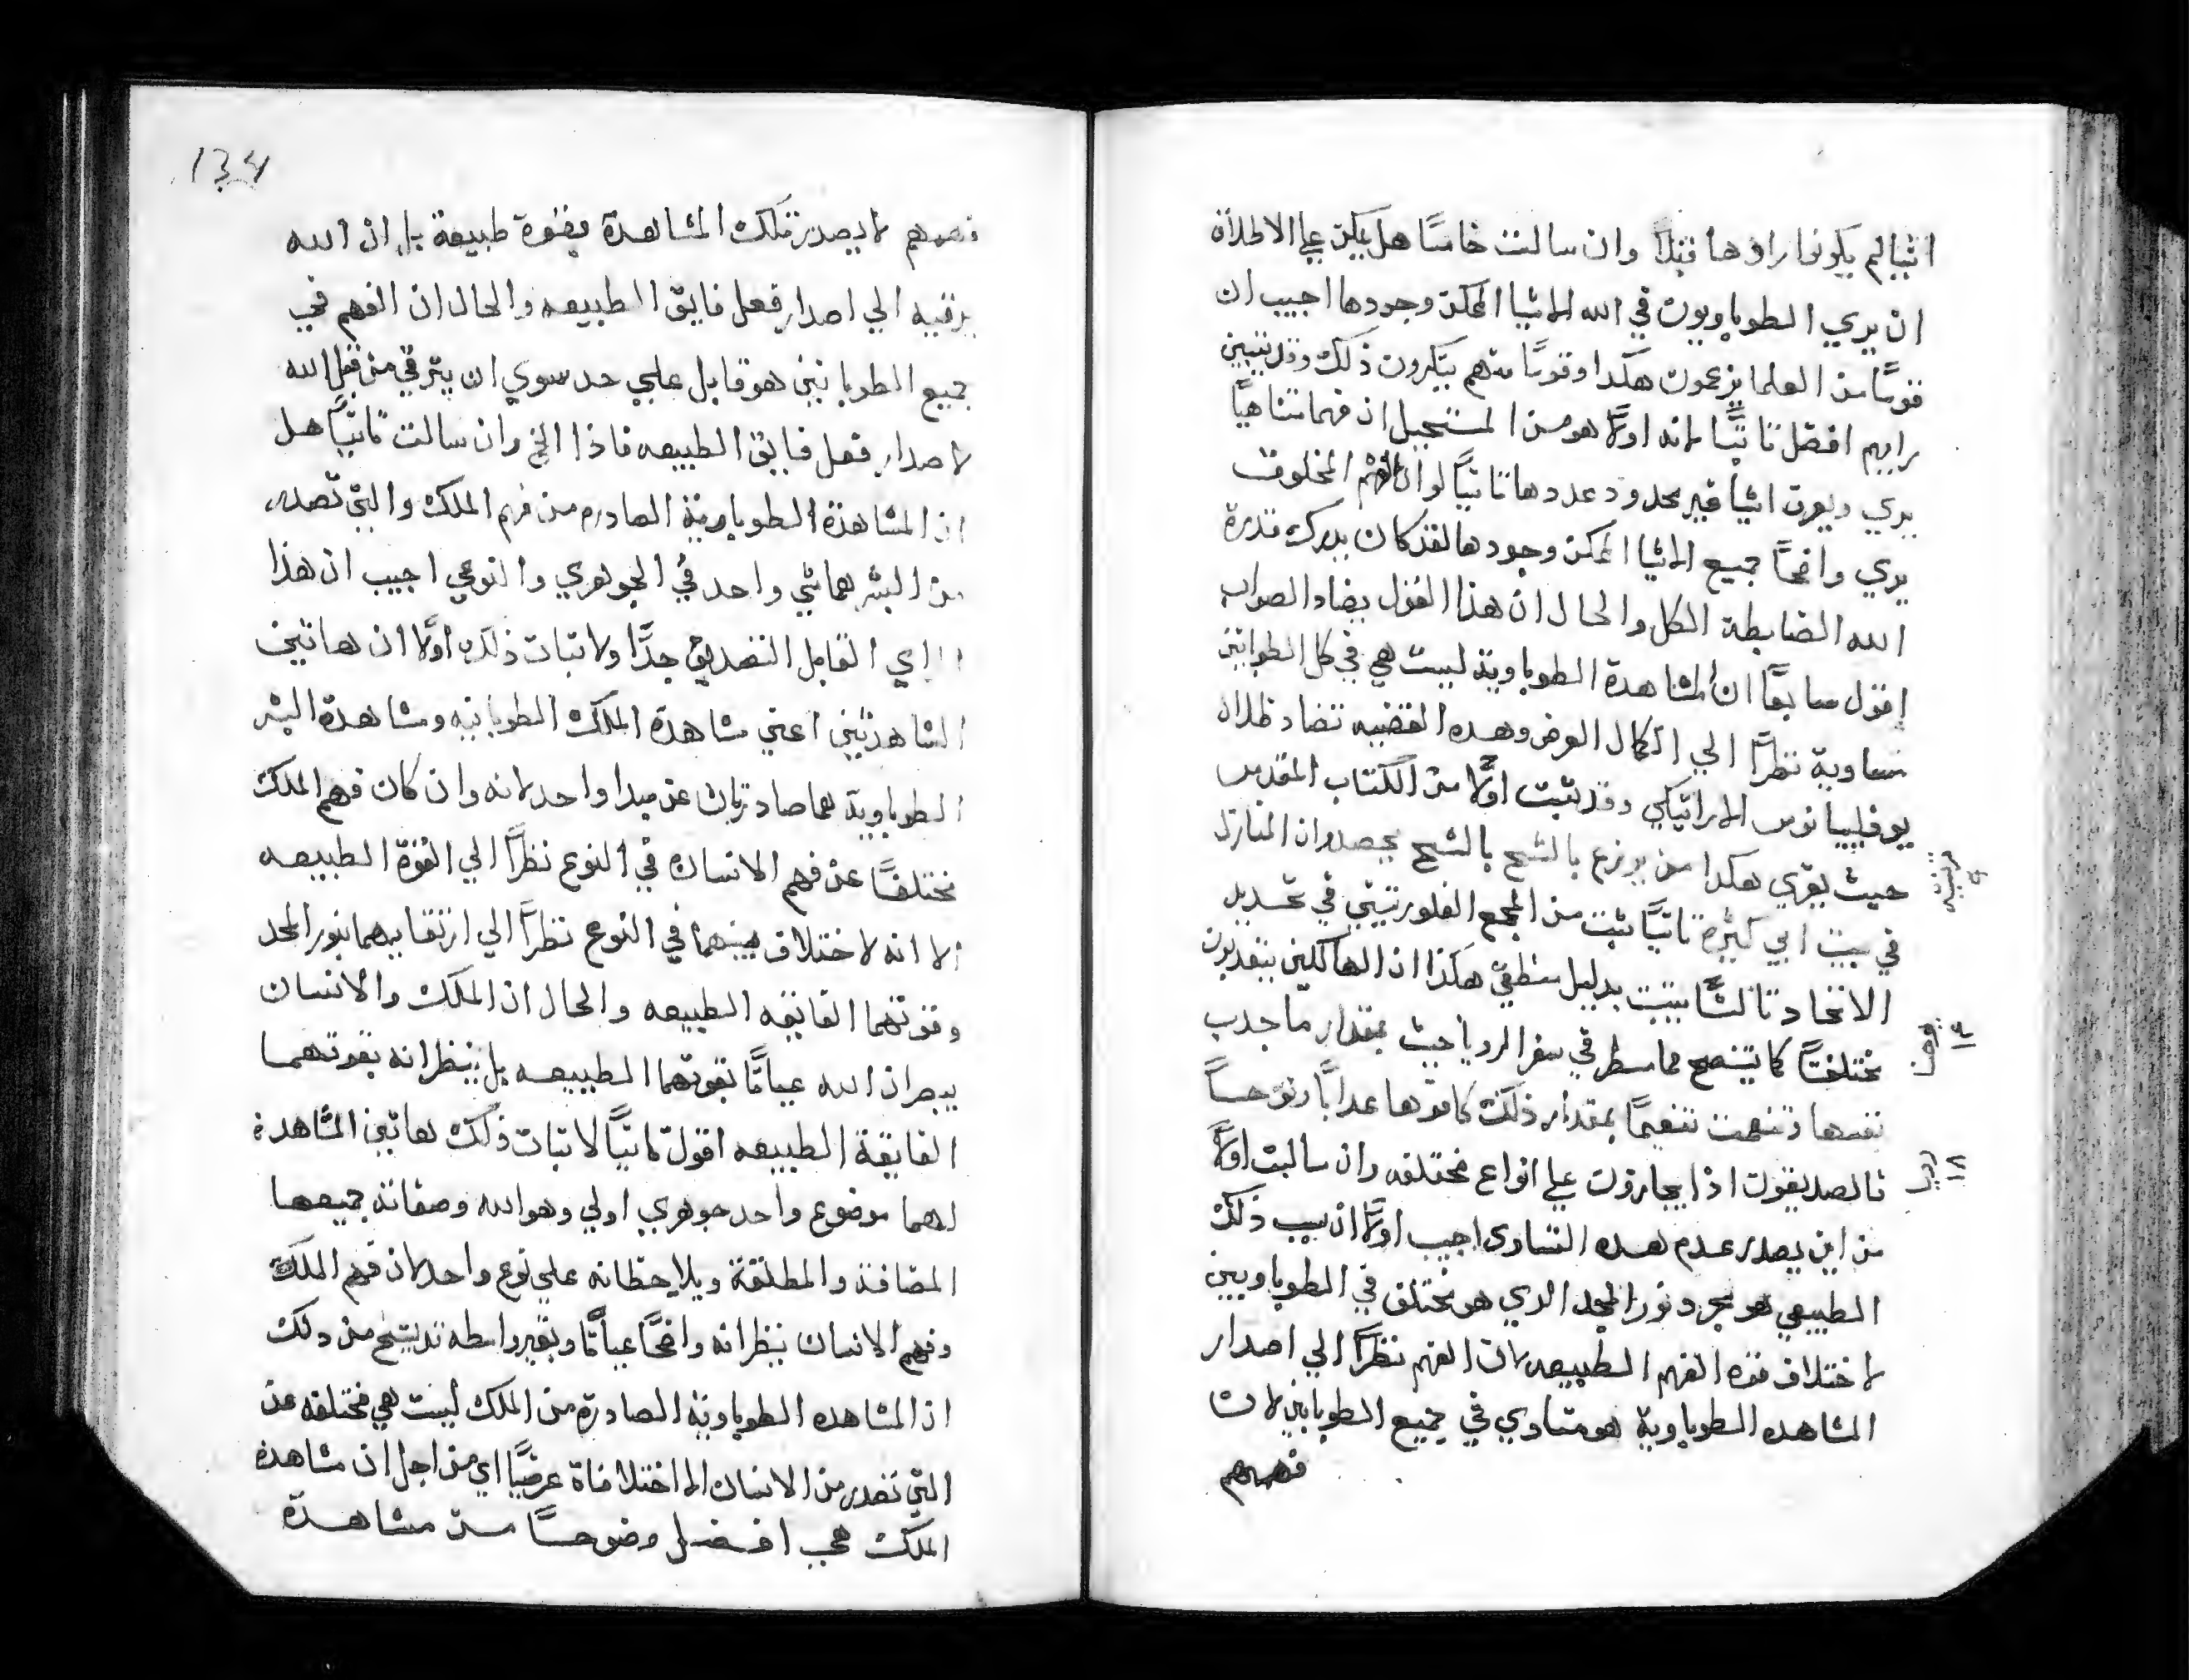 اشيا لم يكونوا راوها قبلاً وان سالت خامسًا هل يمكن علي الاطلاق
ان يري الطوباويون في الله الاشيا الممكن وجودها اجيب ان
قومًا من العلما يزعمون هكدا وقومًا منهم ينكرون ذلك وقد تبين
رايهم افضل ثانيًا لانه اولاً هو من المستحيل ان فهما متناهيًا
يري ويعرف اشيا غير محدود عددها ثانيًا لو ان الفهم المخلوق
يري واضحًا جميع الاشيا الممكن وجودها لقد كان يدرك قدرة
الله الضابطة الكل والحال ان هذا القول يضاد الصواب
اقول سابعًا ان المشاهدة الطوباوية ليست هي في كل الطوبانيين
متساوية نظرًا الي الكمال العرضي وهده القضيه تضاد ظلال
يوفلييانوس الاراتيكي وقد تثبت اولاً من الكتاب المقدس
حيث يقري هكدا من يزرع بالشح بالشح يحصد وان المنازل
في بيت ابي كثيرة ثانيًا تثبت من المجمع الفلورنتيني في تحديد
الاتحاد ثالثًا يثبت بدليل منطقي هكذا ان الهالكين يتعدبون
مختلفًا كما يتضح مما سطر في سفر الرويا حيث بمقدار ما جدب
نفسها وتنعمت تنعيمًا بمقدار ذلك كافوها عدابًا ونوحًا
فالصديقون اذا يجازون علي انواع مختلفه وان سالت اولاً
من اين يصدر عدم هده التساوي اجيب اولاً ان سبب ذلك
الطبيعي هو مجرد نور المجد الدي هو مختلف في الطوباويين
لاختلاف قوة الفهم الطبيعه لان الفهم نظرًا الي اصدار
المشاهده الطوباوية هو متساوي في جميع الطوبانيين لان
فهمهم
يوحنا
١٤
١٨
134
فهمهم لا يصدر تلك المشاهدة بقوة طبيعة بل ان الله
يرقيه الي اصدار فعل فايق الطبيعه والحال ان الفهم في
جميع الطوبانيين هو قابل علي حد سوي ان يترقي من قبل الله
لاصدار فعل فايق الطبيعه فاذا الخ وان سالت ثانيًا هل
ان المشاهدة الطوباوية الصادره من فهم الملك والتي تصدر
من البشر هما شي واحد في الجوهري والنوعي اجيب ان هذا
الراي القابل التصديق جدًا ولاثبات ذلك اولاً ان هاتين
المشاهدتين اعني مشاهدة الملك الطوبانيه ومشاهدة البشر
الطوباوية هما صادرتان عن مبدا واحد لانه وان كان فهم الملك
مختلفًا عن فهم الانسان في النوع نظرًا الي القوة الطبيعه
الا انه لا اختلاف بينهما في النوع نظرًا الي ارتقايهما بنور المجد
وقوتهما الفايقه الطبيعه والحال ان الملك والانسان
يبصران الله عيانًا بقوتهما الطبيعه بل ينظرانه بقوتهما
الفايقة الطبيعه اقول ثانيًا لاثبات ذلك لهاتين المشاهدة
لهما موضوع واحد جوهري اولي وهو الله وصفاته جميعها
المضافة والمطلقة ويلاحظانه علي نوع واحد لان فهم الملك
وفهم الانسان ينظرانه واضحًا عيانًا وبغير واسطه قد يتضح من دلك
ان المشاهده الطوباوية الصادرة من الملك ليست هي مختلفه عن
التي تصدر من الانسان الا اختلافاة عرضيًا اي من اجل ان مشاهدة
الملك هي افضل وضوحًا من مشاهدة